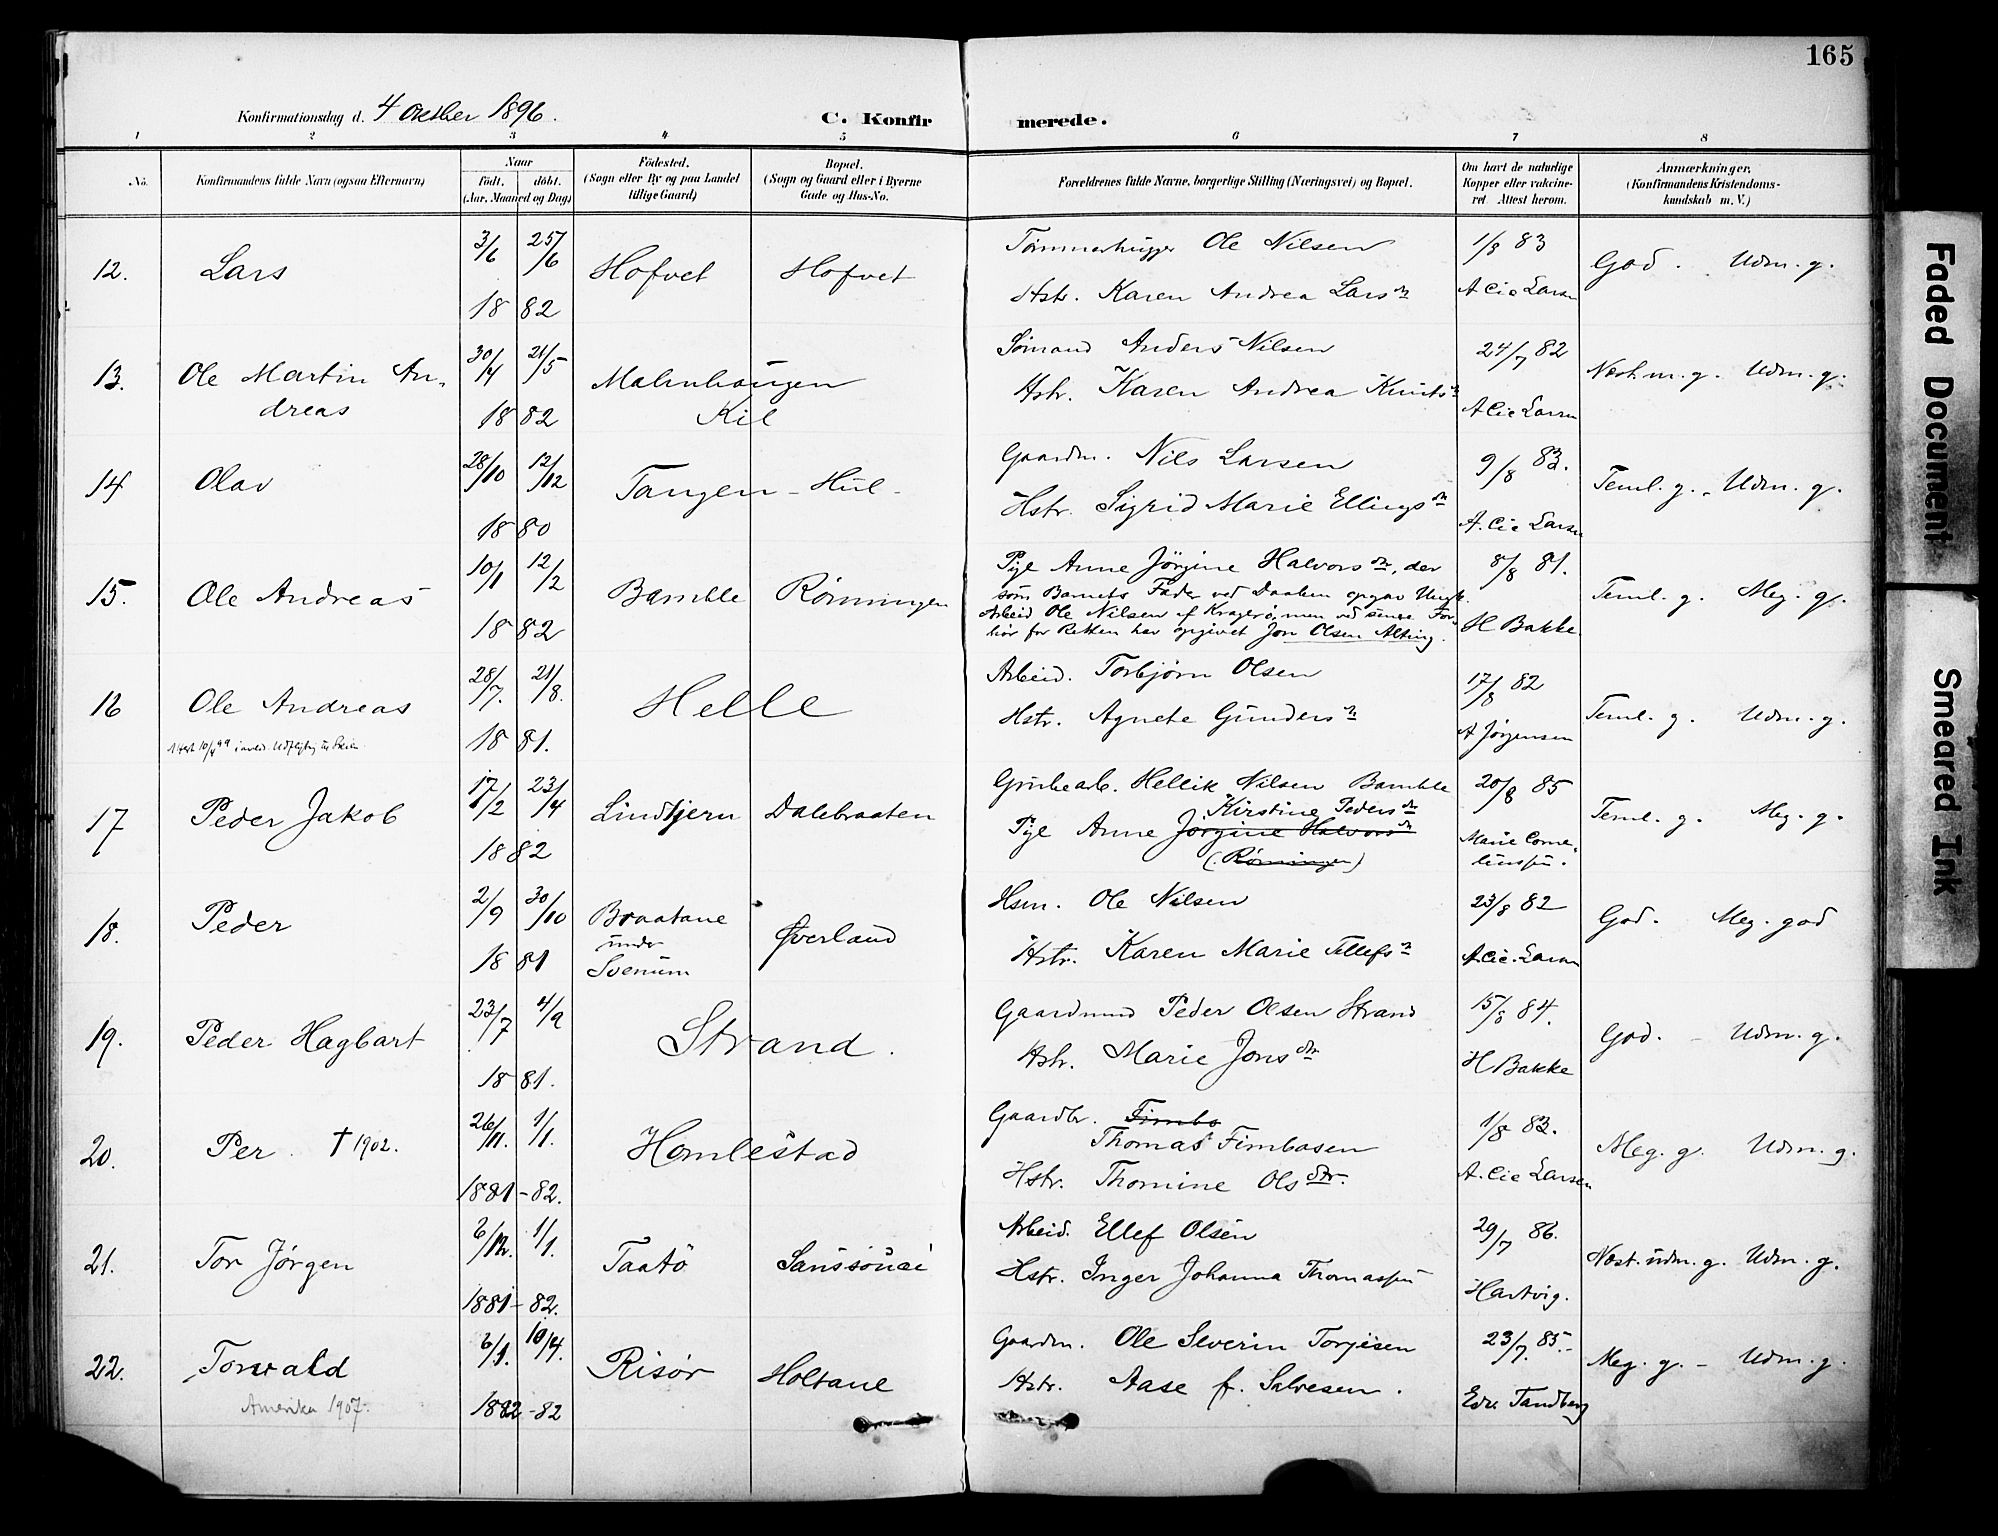 165
Konfirmationsdag d. 4 October 1896.
C. Konfirmerede.
1 2 3 4 5 6 7 8
No. Konfirmandens fulde Navn (ogsaa Efternavn) Naar Födt. döbt. (Aar, Maaned og Dag) Födested. (Sogn eller By og paa Landet tillige Gaard) Bopæl. (Sogn og Gaard eller i Byerne Gade og Hus-No. Forældrenes fulde Navne, borgerlige Stilling (Næringsvei) og Bopæl. Om havt de naturlige Kopper eller vakcineret Attest herom. Anmærkninger. (Konfirmandens Kristendomskundskab m. V.)
12. Lars 3/6 25/6 1882 Hofvet Hofvet Tømmerhugger Ole Nilsen 1/8 83 God. Udm. g.
Hstr. Karen Andrea Larsdr A Cie Larsen
13. Ole Martin Andreas 30/4 21/5 1882 Malmhaugen Kil Sømand Anders Nilsen 24/7 82 Næst m. g. Udm. g.
Hstr. Karen Andrea Knutsdr A Cie Larsen
14 Olav 28/10 12/12 1880 Tangen - Hul - Gaardm. Nils Larsen 9/8 83. Teml. g. - Udm. g.
Hstr. Sigrid Marie Ellingsdr A. Cie Larsen
15. Ole Andreas 10/1 12/2 1882 Bamble Rønningen Pige Anne Jørgine Halvorsdr, der 8/8 81. Teml. g. Meg. g.
som Barnets Fader ved Daaben opgav Ungk.
Arbeid Ole Nilsen af Kragerø, men ved senere For-
hør for Retten har opgivet Jon Olsen Alting. H Bakke
16 Ole Andreas 28/7. 21/8. 1881. Helle Arbeid. Torbjørn Olsen 17/8 82 Teml. g. Udm. g.
Attest 10/4 99 Udflytng til Skien. Hstr. Agnete Gundersdr A Jørgensen
17 Peder Jakob 17/2 23/4 1882 Lindtjern Dalebraaten Grubearb. Hellik Nilsen Bamble 20/8 85 Teml. g. Meg. g.
Kirstine Pedersdr
Pige Anne Jørgine Halvorsdr Marie Corneliussen.
(Rønningen)
18. Peder 2/9 30/10 1881 Braatane under Svenum Øverland Hsm. Ole Nilsen 23/8 82 God. Meg. god
Hstr. Karen Marie Tellefsdr A. Cie. Larsen
19. Peder Hagbart 23/7 4/9 1881. Strand. Gaardmand Peder Olsen Strand 15/8 84. God. - Udm. g.
Hstr. Marie Jonsdtr H Bakke
20. Per. † 1902. 26/11. 1/1. 1881-82. Homlestad Gaardbr. Fimbo 1/8 83. Meg. g. Udm. g.
Thomas Fimbosen
Hstr. Thomine Olsdtr. A. Cie Larsen
21. Tor Jørgen 6/12. 1/1. 1881-82. Taatö Sanssouci Arbeid. Ellef Olsen 29/7 86. Næst. udm. g. Udm. g.
Hstr. Inger Johanna Thomassen Hartvig.
22. Torvald 6/1. 10/4. 1882-82 Risør Holtane Gaardm. Ole Severin Torjesen 23/7. 85. Meg. g. - Udm. g.
Amerika 1907. Hstr. Aase f. Salvesen. Edv. Tandberg
Faded Document
Smeared Ink